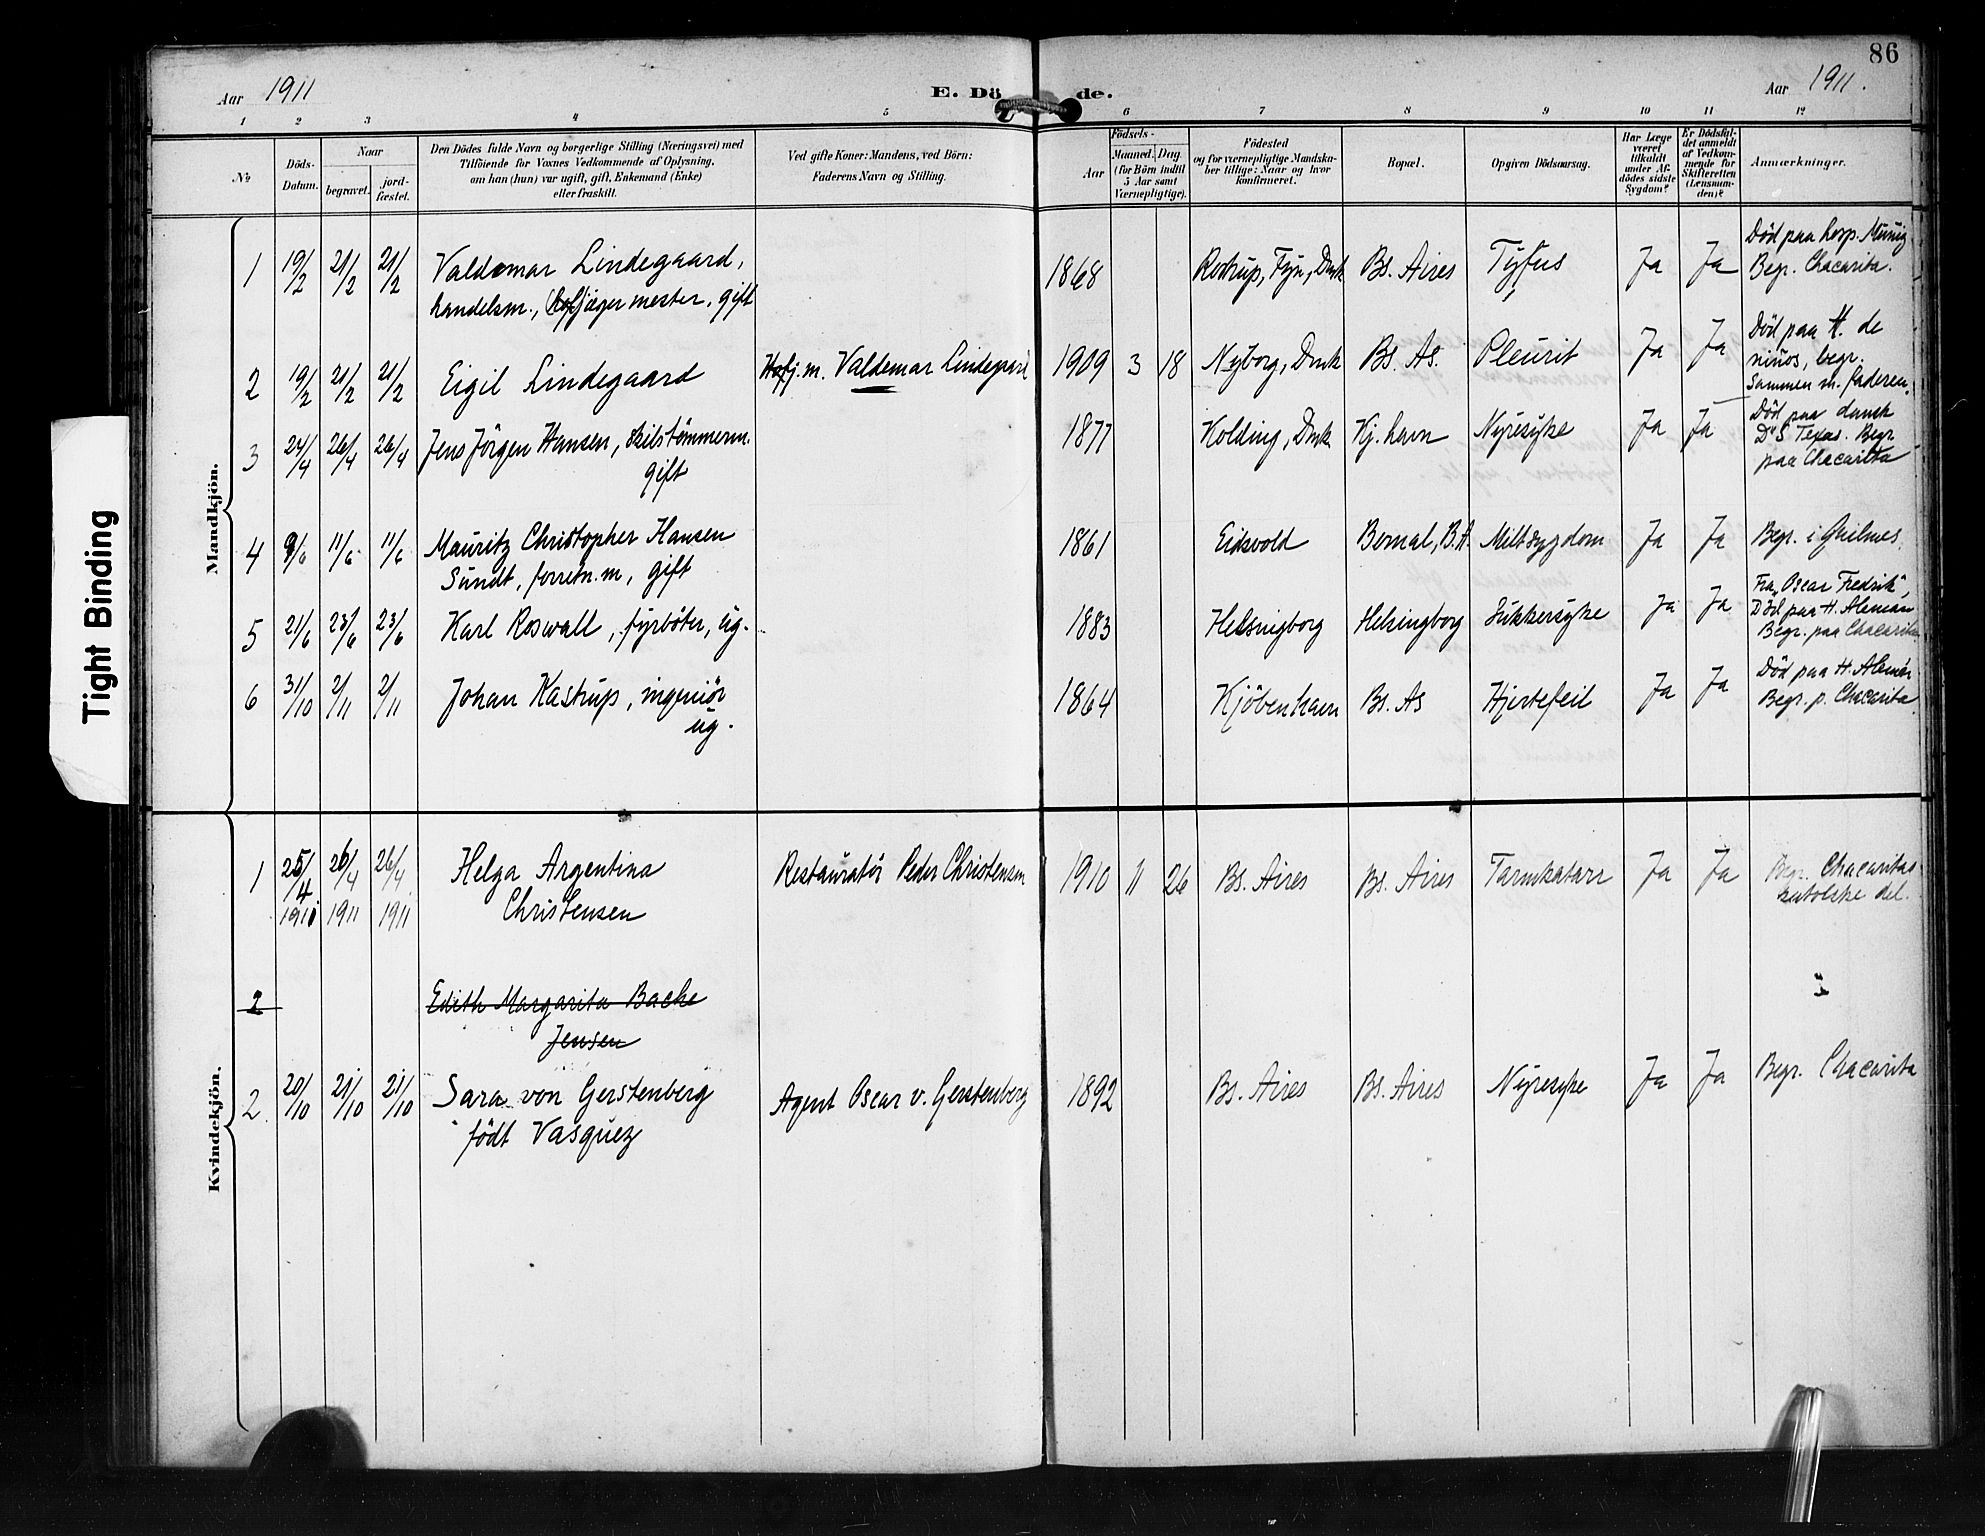 86
Aar 1911
E. Dö de.
Aar 1911.
1 2 3 4 5 6 7 8 9 10 11 12
No
Döds-Datum.
Naar
begravet.
jord-fæstet.
Den Dödes fulde Navn og borgerlige Stilling (Næringsvei) med
Tilföiende for Voxnes Vedkommende af Oplysning,
om han (hun) var ugift, gift, Enkemand (Enke)
eller fraskilt.
Ved gifte Koner: Mandens, ved Börn:
Faderens Navn og Stilling.
Födsels-
Aar
Maaned. Dag
(for Börn indtil
5 Aar samt
Værnepligtige).
Födested
og for værnepligtige Mandskaber tillige: Naar og hvor
konfirmeret.
Bopæl.
Opgiven Dödsaarsag.
Har Læge
været
tilkaldt
under Afdödes sidste
Sygdom?
Er Dödsfaldet anmeldt
af Vedkommende for
Skifteretten
(Lensmanden)?
Anmærkninger.
Mandkjön.
1 19/2 21/2 21/2 Valdemar Lindegaard, 1868 Rostrup, Fyn, Dmk Bs. Aires Tyfus Ja Ja Död paa hosp. Munig
handelsm., hofjægermester, gift Begr. Chacarita.
2 19/2 21/2 21/2 Eigil Lindegaard Hofj.m. Valdemar Lindegaard 1909 3 18 Nyborg, Dmk Bs. As. Pleurit Ja Ja Död paa H. de
niños, begr.
Sammen m. faderen.
3 24/4 26/4 26/4 Jens Jörgen Hansen, Skibstömmerm. 1877 Kolding, Dmk Kj.havn Nyresyke Ja Ja Död paa dansk
gift D"S Texas. Begr
paa Chacarita
4 9/6 11/6 11/6 Mauritz Christopher Hansen 1861 Eidsvold Bernal, B.A. Miltsygdom Ja Ja Begr. i Quilmes.
Sundt, forretn.m, gift
5 21/6 23/6 23/6 Karl Roswall, fyrböter, ug. 1883 Helsingborg Helsingborg Sukkersyke Ja Ja Fra "Oscar Fredrik",
Död paa H. Aleman
Begr. paa Chacarita
6 31/10 2/11 2/11 Johan Kastrup, ingeniör 1864 Kjöbenhavn Bs. As Hjertefeil Ja Ja Död paa H. Aleman
ug. Begr. p. Chacarita
Kvindekjön.
1 25/4 26/4 26/4 Helga Argentina Restauratör Peder Christensen 1910 11 26 Bs. Aires Bs. Aires Tarmkatarr Ja Ja Begr. Chacaritas
1911 1911 1911 Christensen katolske del.
2 Edith Margarita Bache
Jensen
2. 20/10 21/10 21/10 Sara von Gerstenberg Agent Oscar v. Gerstenberg 1892 Bs. Aires Bs. Aires Nyresyke Ja Ja Begr. Chacarita
födt Vasquez
Tight Binding